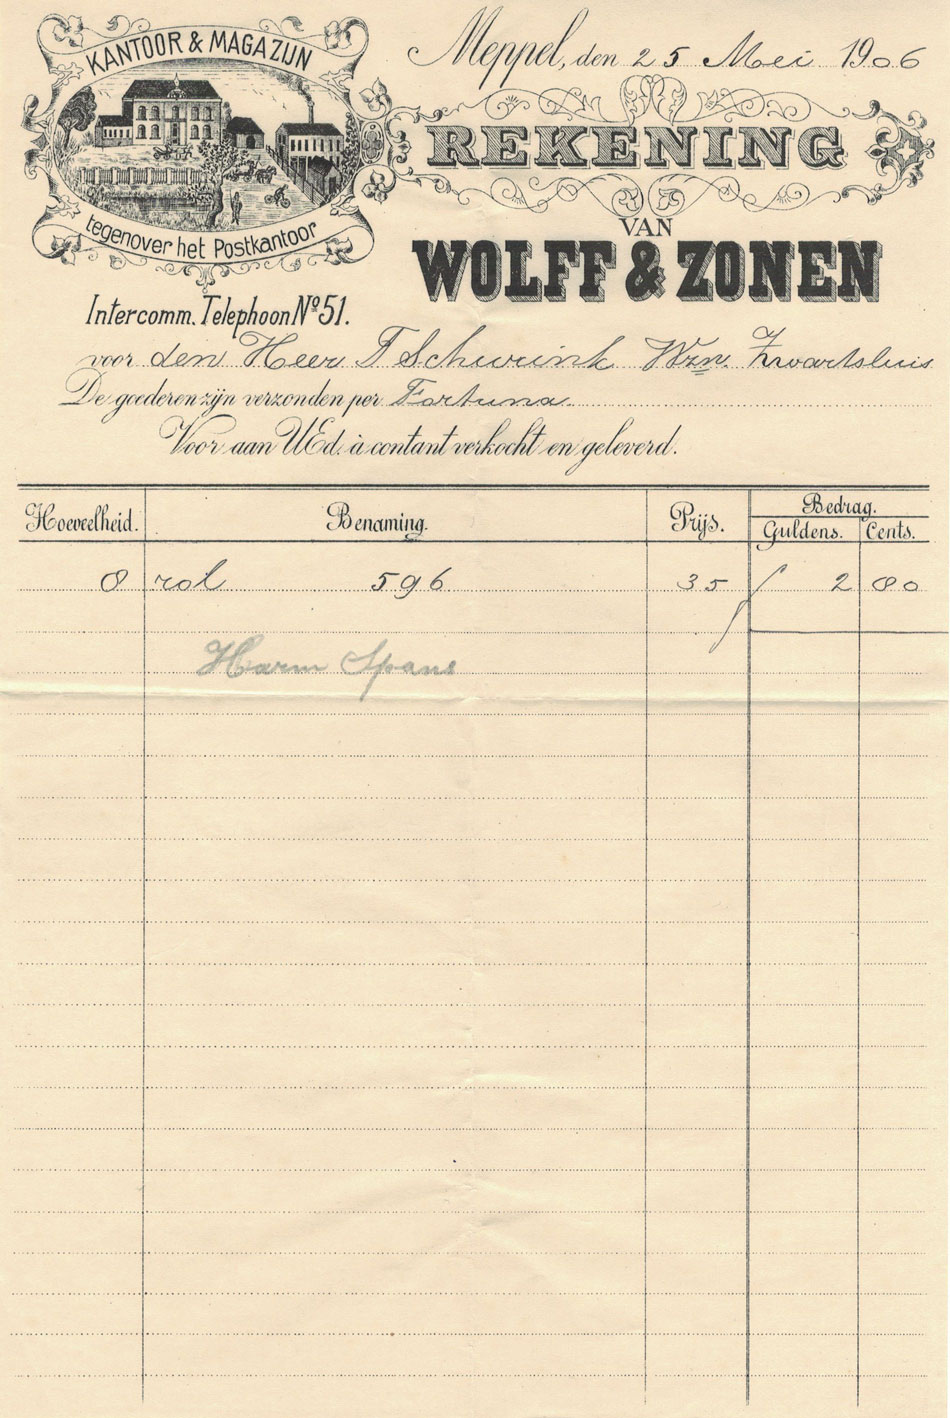 KANTOOR & MAGAZIJN
tegenover het Postkantoor
Intercomm. Telephoon No 51.
Meppel, den 25 Mei 1906
REKENING
VAN
WOLFF & ZONEN
voor den Heer T Schuurink Wzn. Zwartsluis
De goederen zijn verzonden per Fortuna
Voor aan UEd. à contant verkocht en geleverd.
Hoeveelheid. Benaming. Prijs. Bedrag.
Guldens. Cents.
8 rol 596 35 f 2 80
Harm Spans